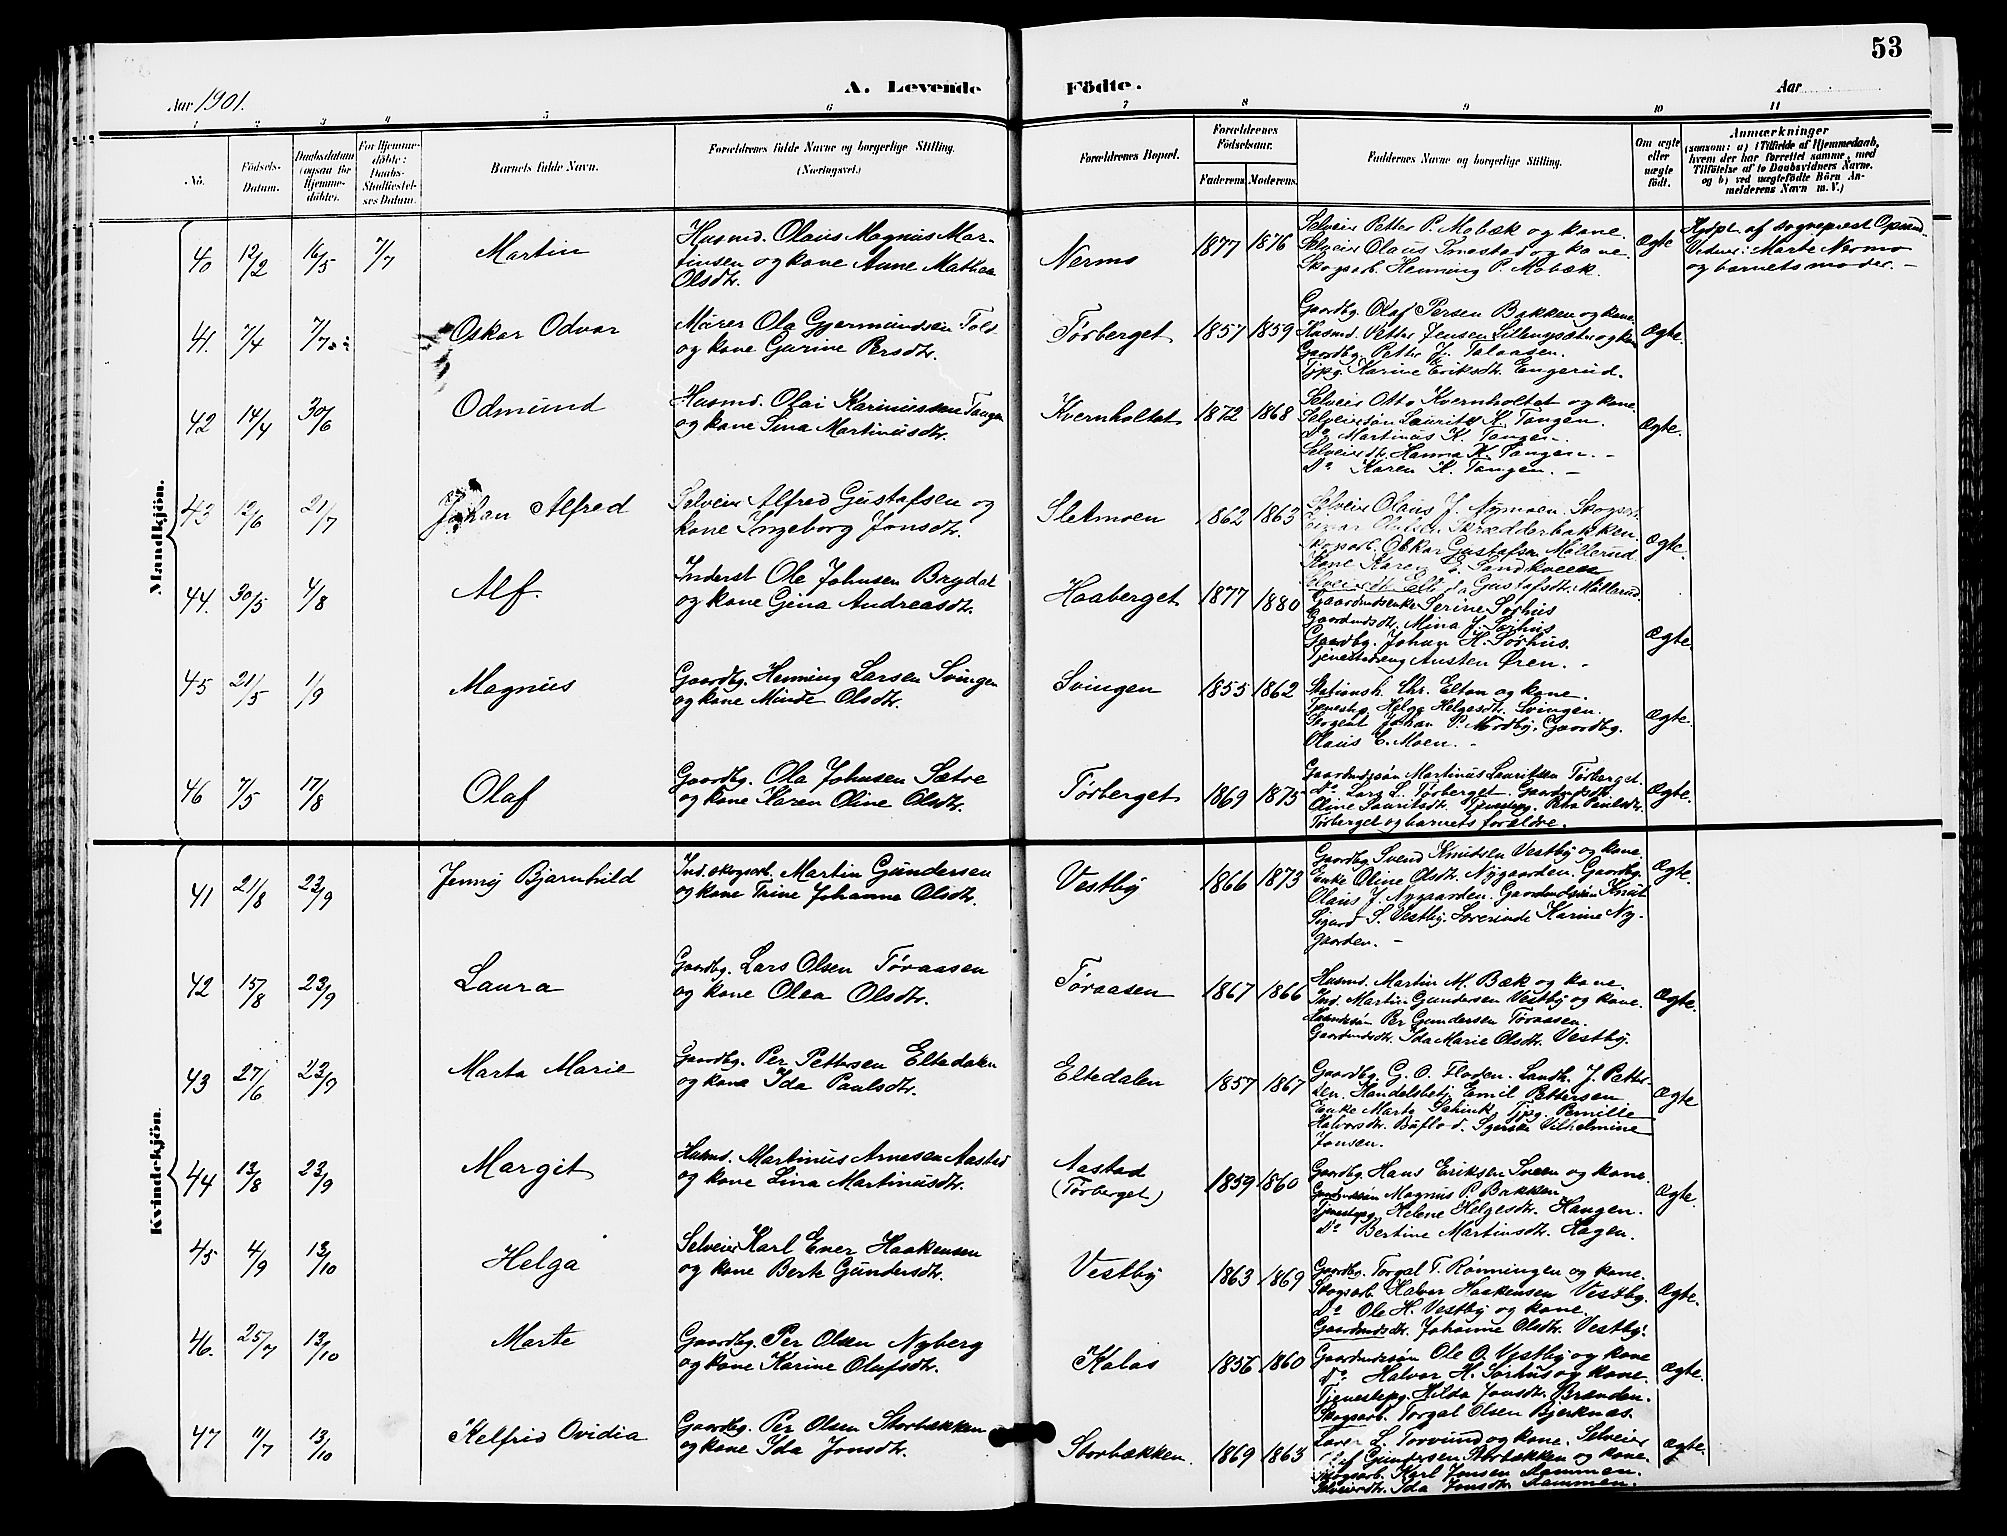 53
Aar 1901.
A. Levende
Födte.
Aar
1
2
3
4
5
6
7
8
9
10
11
No.
Födsels-
Datum.
Daabsdatum
(ogsaa for
Hjemme-
döbte).
For Hjemme-
döbte:
Daabs-
Stadfæstel-
ses Datum.
Barnets fulde Navn.
Forældrenes fulde Navne og borgerlige Stilling.
(Næringsvei.)
Forældrenes Bopæl.
Forældrenes
Födselsaar.
Faderens
Moderens.
Faddernes Navne og borgerlige Stilling.
Om ægte
eller
uægte
födt.
Anmærkninger
(saasom: a) (Tilfælde af Hjemmedaab,
hvem der har forrettet samme, med
Tilföielse af to Daabsvidners Navne.
og b) ved uægtefödte Börn An-
melderens Navn m. V.)
Mandkjön.
40
12/2
16/5
7/7
Martin
Husmd. Olaus Magnus Mar-
tinsen og kone Anne Mathea
Olsdtr.
Nermo
1877
1876
Selveier Petter P. Mobæk og kone.
Selveier Olaus Smestad og kone.
Skogsarb. Henning P. Mobæk.
Ægte
Hjdpt. af sogneprest Opsund.
Vidner: Marte Nermo
og barnets moder. -
41.
7/4
7/7
Oskar Odvar
Murer Ola Gjermundsen
og kone Gurine Persdtr.
Törberget
1857
1859
Gaardbg. Olaf Persen Bakken og kone
Husmd. Petter Jensen og kone
Gaardbg. Petter J. Talaasen.
Tjpg. Karine Eriksdtr. Engerud.
Ægte.
42
14/4
30/6
Odmund
Husmd. Olai Karinussen Tangen
og kone Sina Martinusdtr.
Kvernholtet
1872
1868
Selveier Otto Kvernholtet og kone.
Selveiersøn Laurits K. Tangen.
Do Martinus K. Tangen.
Selveierdtr. Hanna K. Tangen. -
Do Karen K. Tangen. -
Ægte.
43
12/6
21/7
Johan Alfred
Selveier Alfred Gustafsen og
kone Ingeborg Jonsdtr.
Sletmoen
1862
1863
Selveier Olaus J. Nymoen. Skogsarb.
Skrædderbakken.
Skogsarb. Oskar Gustafsen Möllerud.
Kone Karen Sandkveen
Selveierdtr. Gustafsdtr. Möllerud.
Ægte.
44.
30/5
4/8
Alf.
Inderst Ole Johnsen Brydal
og kone Gina Andreasdtr.
Haaberget
1877
1880
Gaardmdsenke Serine Sörhus
Gaardmdsdtr. Mina J. Sörhus
Gaardbg. Johan H. Sörhus.
Tjenestedreng Austen Øren. -
Ægte.
45
21/5
1/9
Magnus
Gaardbg. Henning Larsen Svingen
og kone Minde Olsdtr.
Svingen
1855
1862
Stationsh. Chr. Elton og kone.
Tjenestpg. Helga Helgesdtr. Svingen.
Johan P. Nordby. Gaardbg.
Olaus E. Moen. -
Ægte.
46
7/5
17/8
Olaf
Gaardbg. Ola Johnsen Sætre
og kone Karen Oline Olsdtr.
Törberget
1869
1875
Gaardmdssön Martinus Lauritsen Törberget.
Do Lars L. Törberget. Gaardmdsdtr.
Oline Lauritsdtr. Tjenestepg. Paulsdtr.
Törberget og barnets forældre.
Ægte.
Kvindekjön.
41
21/8
23/9
Jenny Bjarnhild
Ind. skogsarb. Martin Gundersen
og kone Trine Johanne Olsdtr.
Vestby
1866
1873
Gaardbg. Svend Knudsen Vestby og kone.
Enke Oline Olsdtr. Nygaarden. Gaardbg.
Olaus J. Nygaarden. Gaardmdssön Knut
Sigurd S. Vestby. Lærerinde Karine Ny-
gaarden. -
Ægte.
42
15/8
23/9
Laura
Gaardbg. Lars Olsen Töraasen
og kone Olea Olsdtr.
Töraasen
1867
1866
Husmd. Martin M. Bæk og kone.
Ind. Martin Gundersen Vestby og kone.
Per Gundersen Töraasen.
Gaardmdsdtr. Ida Marie Olsdtr. Vestby.
Ægte.
43
27/6
23/9
Marta Marie
Gaardbg. Per Pettersen Eltedalen
og kone Ida Paulsdtr.
Eltedalen
1857
1867
Gaardbg. G. O. Floden. Landh. J. Petter-
sen. Handelsbetj. Emil Pettersen.
Enke Marte Tjpg. Pernille
Halvorsdtr. Vilhelmine
Jonsen.
Ægte
44
13/8
23/9
Margit
Husmd. Martinus Arnesen Aastad
og kone Lina Martinusdtr.
Aastad
(Törberget)
1859
1860
Gaardbg. Hans Eriksen Sveen og kone.
Gaardmdssøn Magnus P. Bakken
Tjenestepg. Helene Helgesdtr. Haugen.
Do Bertine Martinsdtr. Hagen.
Ægte.
45
4/9
13/10
Helga
Selveier Karl Ener Haakensen
og kone Berte Gundersdtr.
Vestby
1863
1869
Gaardbg. Torgal T. Rönningen og kone.
Skogsarb. Halvor Haakensen Vestby.
Do Ole H. Vestby og kone.
Gaardmdsdtr. Johanne Olsdtr. Vestby.
Ægte.
46.
25/7
13/10
Marte
Gaardbg. Per Olsen Nyberg
og kone Karine Olufsdtr.
Kolos
1856
1860
Gaardmdssøn Ole O. Vestby og kone
Do Halvor H. Sörhus og kone.
Tjenestepg. Hilda Jonsdtr. Brenden.
Skogsarb. Torgal Olsen Bjerknæs.
Ægte.
47
11/7
13/10
Helfrid Ovidia
Gaardbg. Per Olsen Storbækken
og kone Ida Jonsdtr.
Storbækken.
1869
1863
Lærer L. Torvund og kone. Selveier
Gundersen Storbækken og kone.
Skogsarb. Karl Jonsen Stammen.
Selveierdtr. Ida Jonsdtr. Stammen.
Ægte.